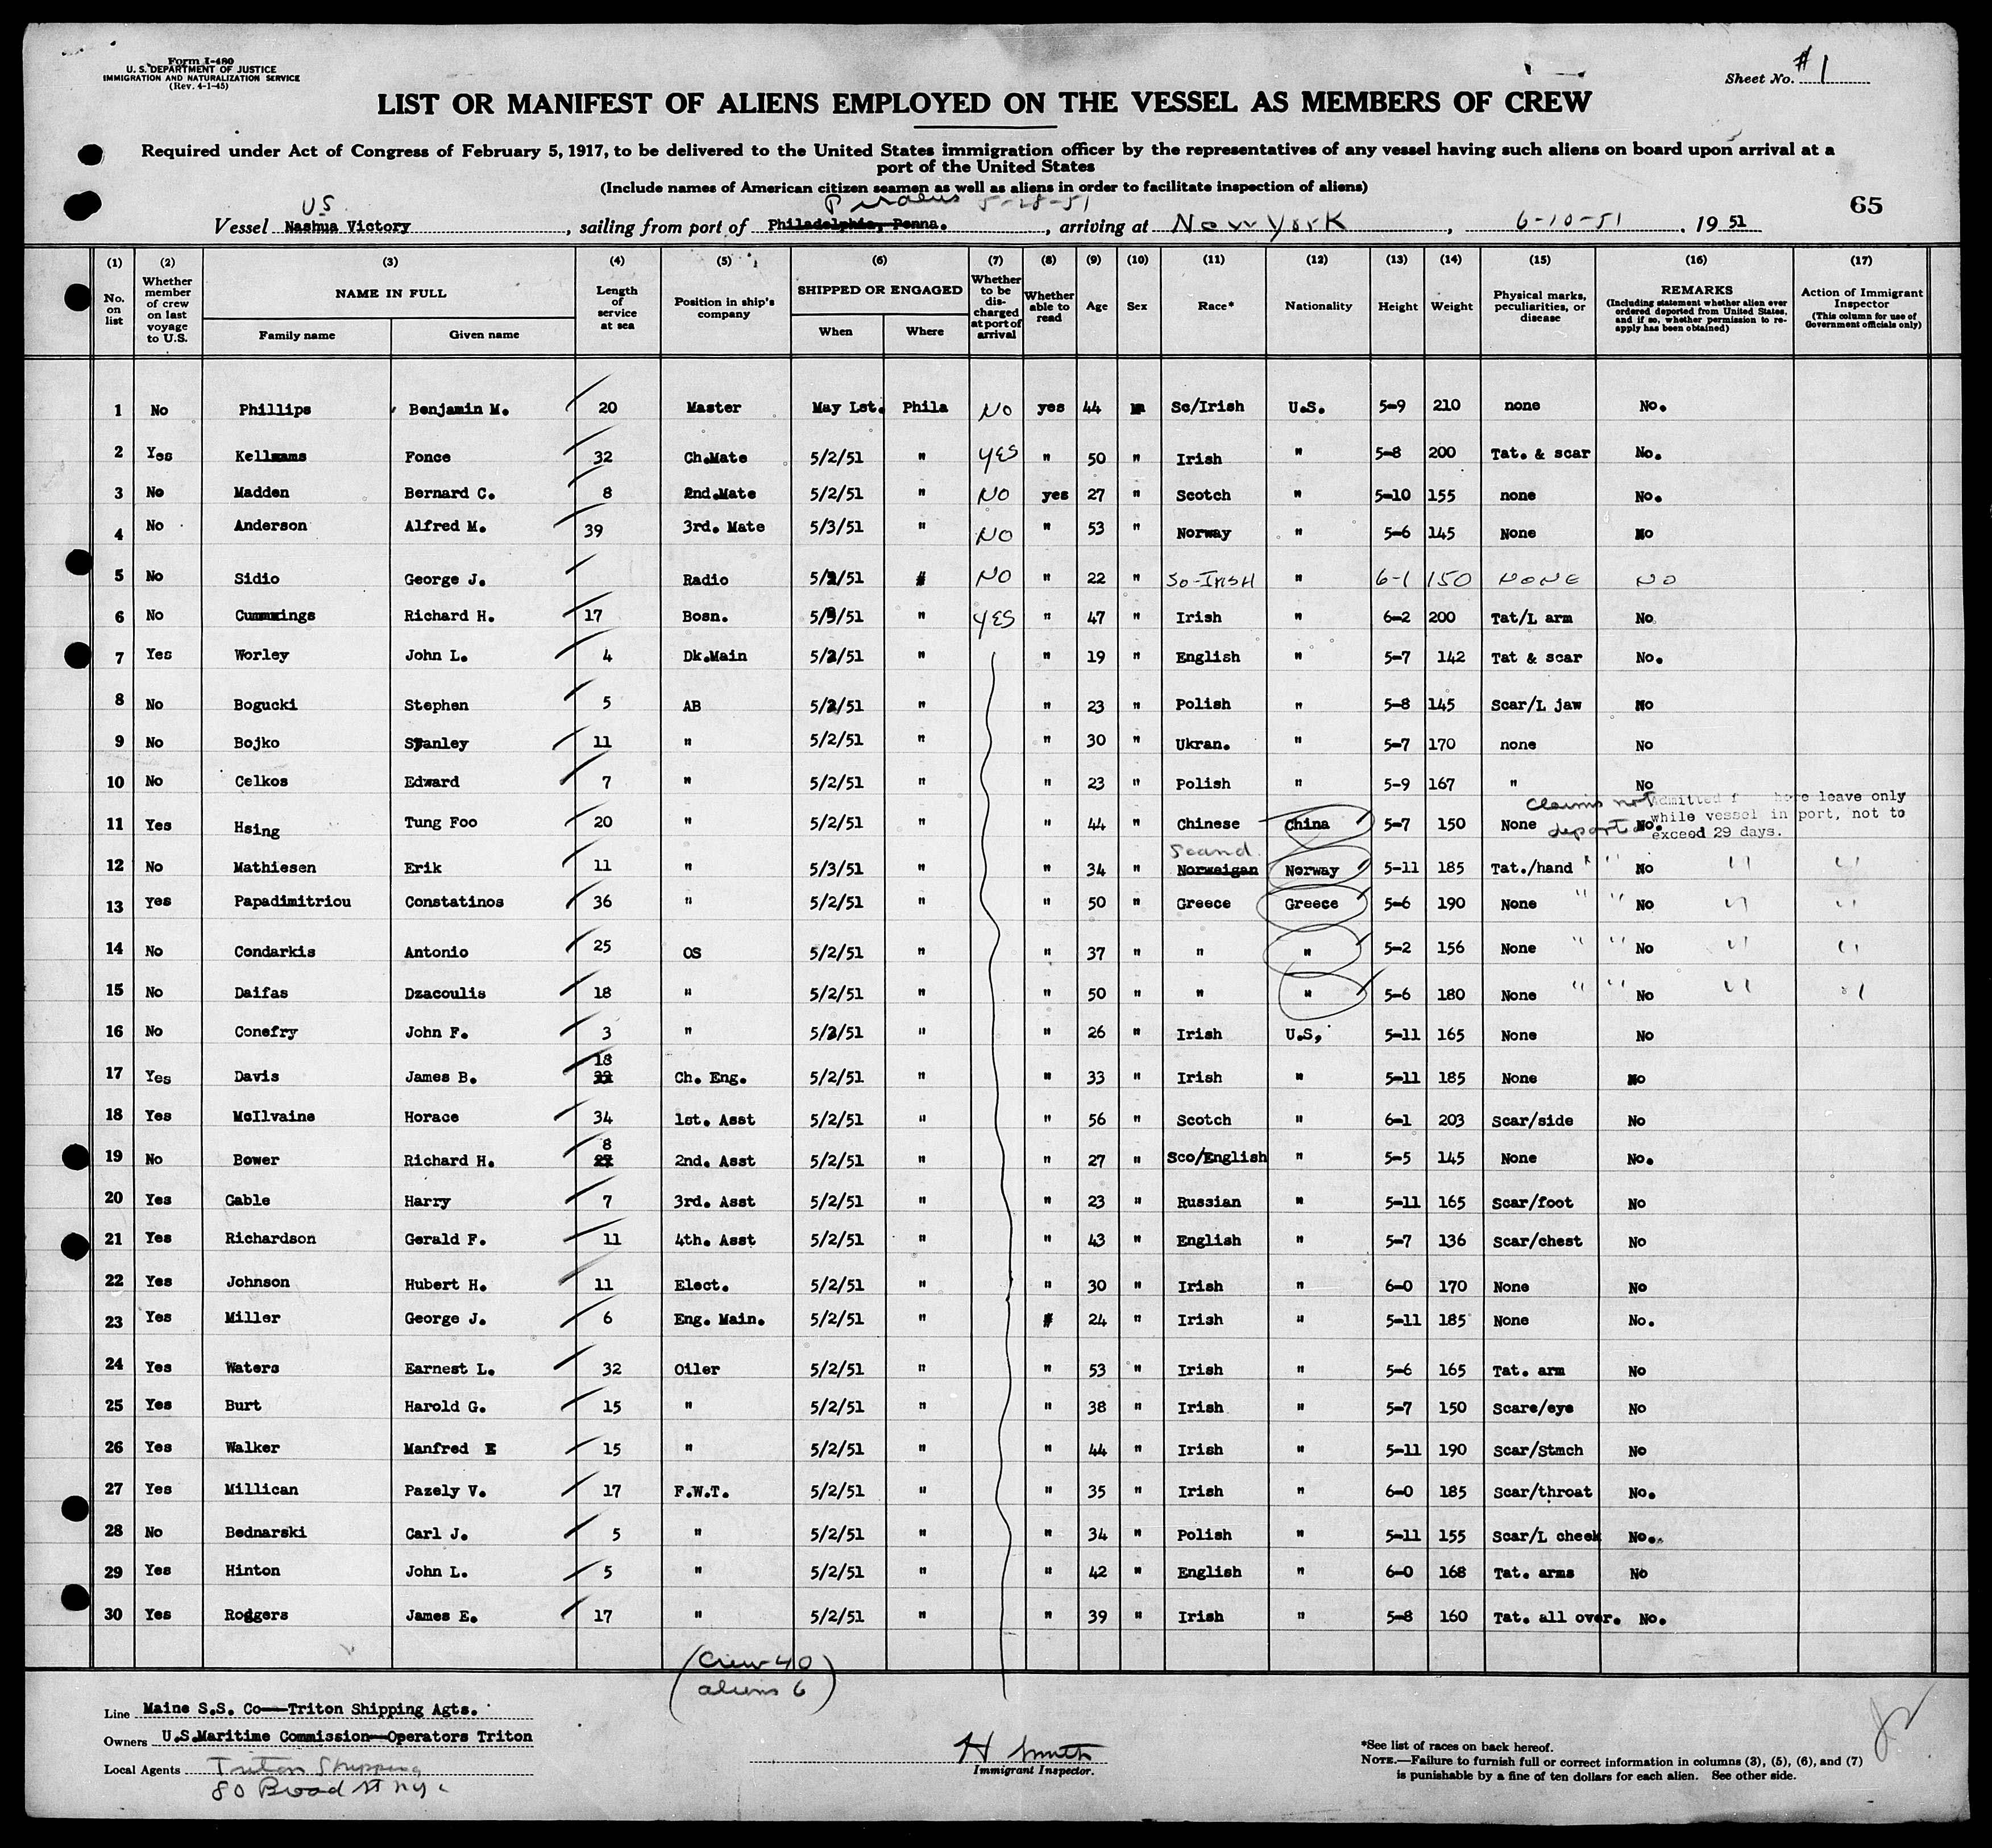 Form I-480
U. S. DEPARTMENT OF JUSTICE
IMMIGRATION AND NATURALIZATION SERVICE
(Rev. 4-1-45)
Sheet No. #1
LIST OR MANIFEST OF ALIENS EMPLOYED ON THE VESSEL AS MEMBERS OF CREW
Required under Act of Congress of February 5, 1917, to be delivered to the United States immigration officer by the representatives of any vessel having such aliens on board upon arrival at a
port of the United States
(Include names of American citizen seamen as well as aliens in order to facilitate inspection of aliens)
65
US Piraeus 5-28-51
Vessel Nashua Victory, sailing from port of Philadelphia, Penna., arriving at New York, 6-10-51, 19 51
(1) No. on list
(2) Whether member of crew on last voyage to U.S.
(3) NAME IN FULL Family name Given name
(4) Length of service at sea
(5) Position in ship's company
(6) SHIPPED OR ENGAGED When Where
(7) Whether to be discharged at port of arrival
(8) Whether able to read
(9) Age
(10) Sex
(11) Race*
(12) Nationality
(13) Height
(14) Weight
(15) Physical marks, peculiarities, or disease
(16) REMARKS (Including statement whether alien ever ordered deported from United States, and if so, whether permission to reapply has been obtained)
(17) Action of Immigrant Inspector (This column for use of Government officials only)
1 No Phillips Benjamin M. 20 Master May 1st. Phila NO yes 44 m Sc/Irish U.S. 5-9 210 none No.
2 Yes Kellmams Fonce 32 Ch.Mate 5/2/51 " YES " 50 " Irish " 5-8 200 Tat. & scar No.
3 No Madden Bernard C. 8 2nd.Mate 5/2/51 " NO yes 27 " Scotch " 5-10 155 none No.
4 No Anderson Alfred M. 39 3rd. Mate 5/3/51 " NO " 53 " Norway " 5-6 145 None No
5 No Sidio George J. Radio 5/2/51 " NO " 22 " Sc-IRISH " 6-1 150 NONE NO
6 No Cummings Richard H. 17 Bosn. 5/3/51 " YES " 47 " Irish " 6-2 200 Tat/L arm No
7 Yes Worley John L. 4 Dk.Main 5/2/51 " " 19 " English " 5-7 142 Tat & scar No.
8 No Bogucki Stephen 5 AB 5/2/51 " " 23 " Polish " 5-8 145 Scar/L jaw No
9 No Bojko Stanley 11 " 5/2/51 " " 30 " Ukran. " 5-7 170 none No
10 No Celkos Edward 7 " 5/2/51 " " 23 " Polish " 5-9 167 " No
11 Yes Hsing Tung Foo 20 " 5/2/51 " " 44 " Chinese China 5-7 150 None No.
Claims not deported
Admitted f hore leave only
while vessel in port, not to
exceed 29 days.
12 No Mathiesen Erik 11 " 5/3/51 " " 34 " Norweigan Scand Norway 5-11 185 Tat./hand " " No " "
13 Yes Papadimitriou Constatinos 36 " 5/2/51 " " 50 " Greece Greece 5-6 190 None " " No " "
14 No Condarkis Antonio 25 OS 5/2/51 " " 37 " " " 5-2 156 None " " No " "
15 No Daifas Dzacoulis 18 " 5/2/51 " " 50 " " " 5-6 180 None " " No " "
16 No Conefry John F. 3 " 5/2/51 " " 26 " Irish U.S, 5-11 165 None No
17 Yes Davis James B. 18 Ch. Eng. 5/2/51 " " 33 " Irish " 5-11 185 None No
18 Yes McIlvaine Horace 34 1st. Asst 5/2/51 " " 56 " Scotch " 6-1 203 Scar/side No
19 No Bower Richard H. 8 2nd. Asst 5/2/51 " " 27 " Sco/English " 5-5 145 None No.
20 Yes Gable Harry 7 3rd. Asst 5/2/51 " " 23 " Russian " 5-11 165 Scar/foot No
21 Yes Richardson Gerald F. 11 4th. Asst 5/2/51 " " 43 " English " 5-7 136 Scar/chest No
22 Yes Johnson Hubert H. 11 Elect. 5/2/51 " " 30 " Irish " 6-0 170 None No
23 Yes Miller George J. 6 Eng. Main. 5/2/51 " " 24 " Irish " 5-11 185 None No.
24 Yes Waters Earnest L. 32 Oiler 5/2/51 " " 53 " Irish " 5-6 165 Tat. arm No
25 Yes Burt Harold G. 15 " 5/2/51 " " 38 " Irish " 5-7 150 Scare/eye No
26 Yes Walker Manfred E 15 " 5/2/51 " " 44 " Irish " 5-11 190 Scar/Stmch No
27 Yes Millican Pazely V. 17 F.W.T. 5/2/51 " " 35 " Irish " 6-0 185 Scar/throat No.
28 No Bednarski Carl J. 5 " 5/2/51 " " 34 " Polish " 5-11 155 Scar/L cheek No..
29 Yes Hinton John L. 5 " 5/2/51 " " 42 " English " 6-0 168 Tat. arms No
30 Yes Rodgers James E. 17 " 5/2/51 " " 39 " Irish " 5-8 160 Tat. all over. No.
(Crew 40
aliens 6)
Line Maine S.S. Co—Triton Shipping Agts.
Owners U.S.Maritime Commission—Operators Triton
Local Agents Triton Shipping
80 Broad St NYC
H Smith
Immigrant Inspector.
*See list of races on back hereof.
NOTE.—Failure to furnish full or correct information in columns (3), (5), (6), and (7)
is punishable by a fine of ten dollars for each alien. See other side.